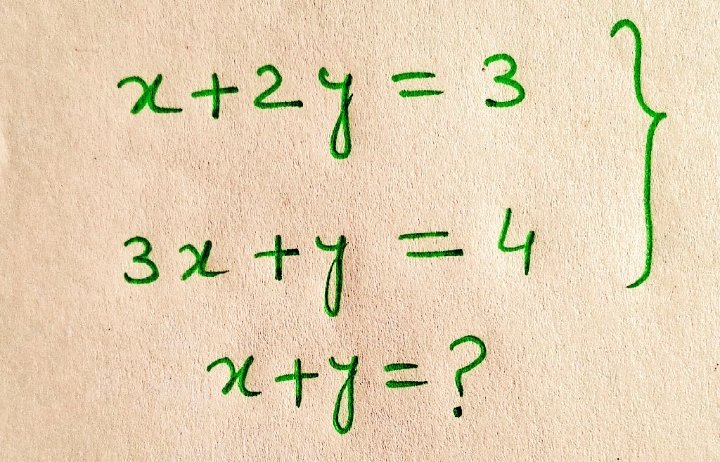 x+2y = 3
3x + y = 4
x+y=?